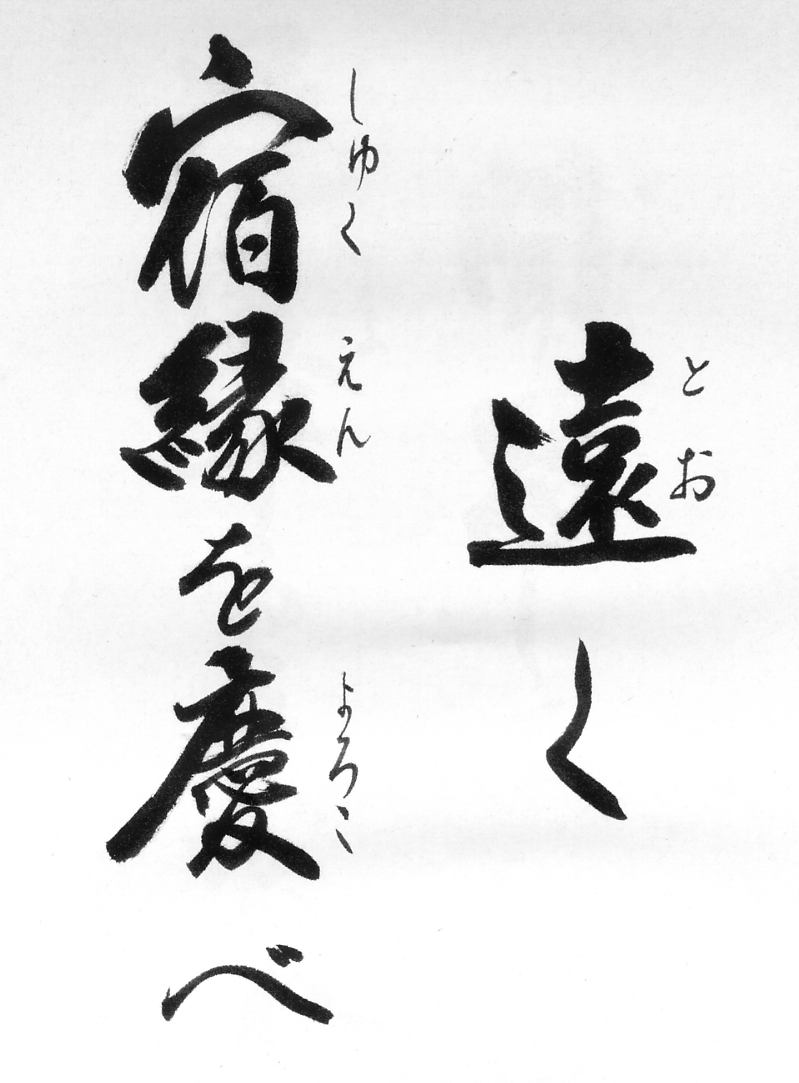 遠く
とお
宿縁を慶べ
しゅく えん よろこ